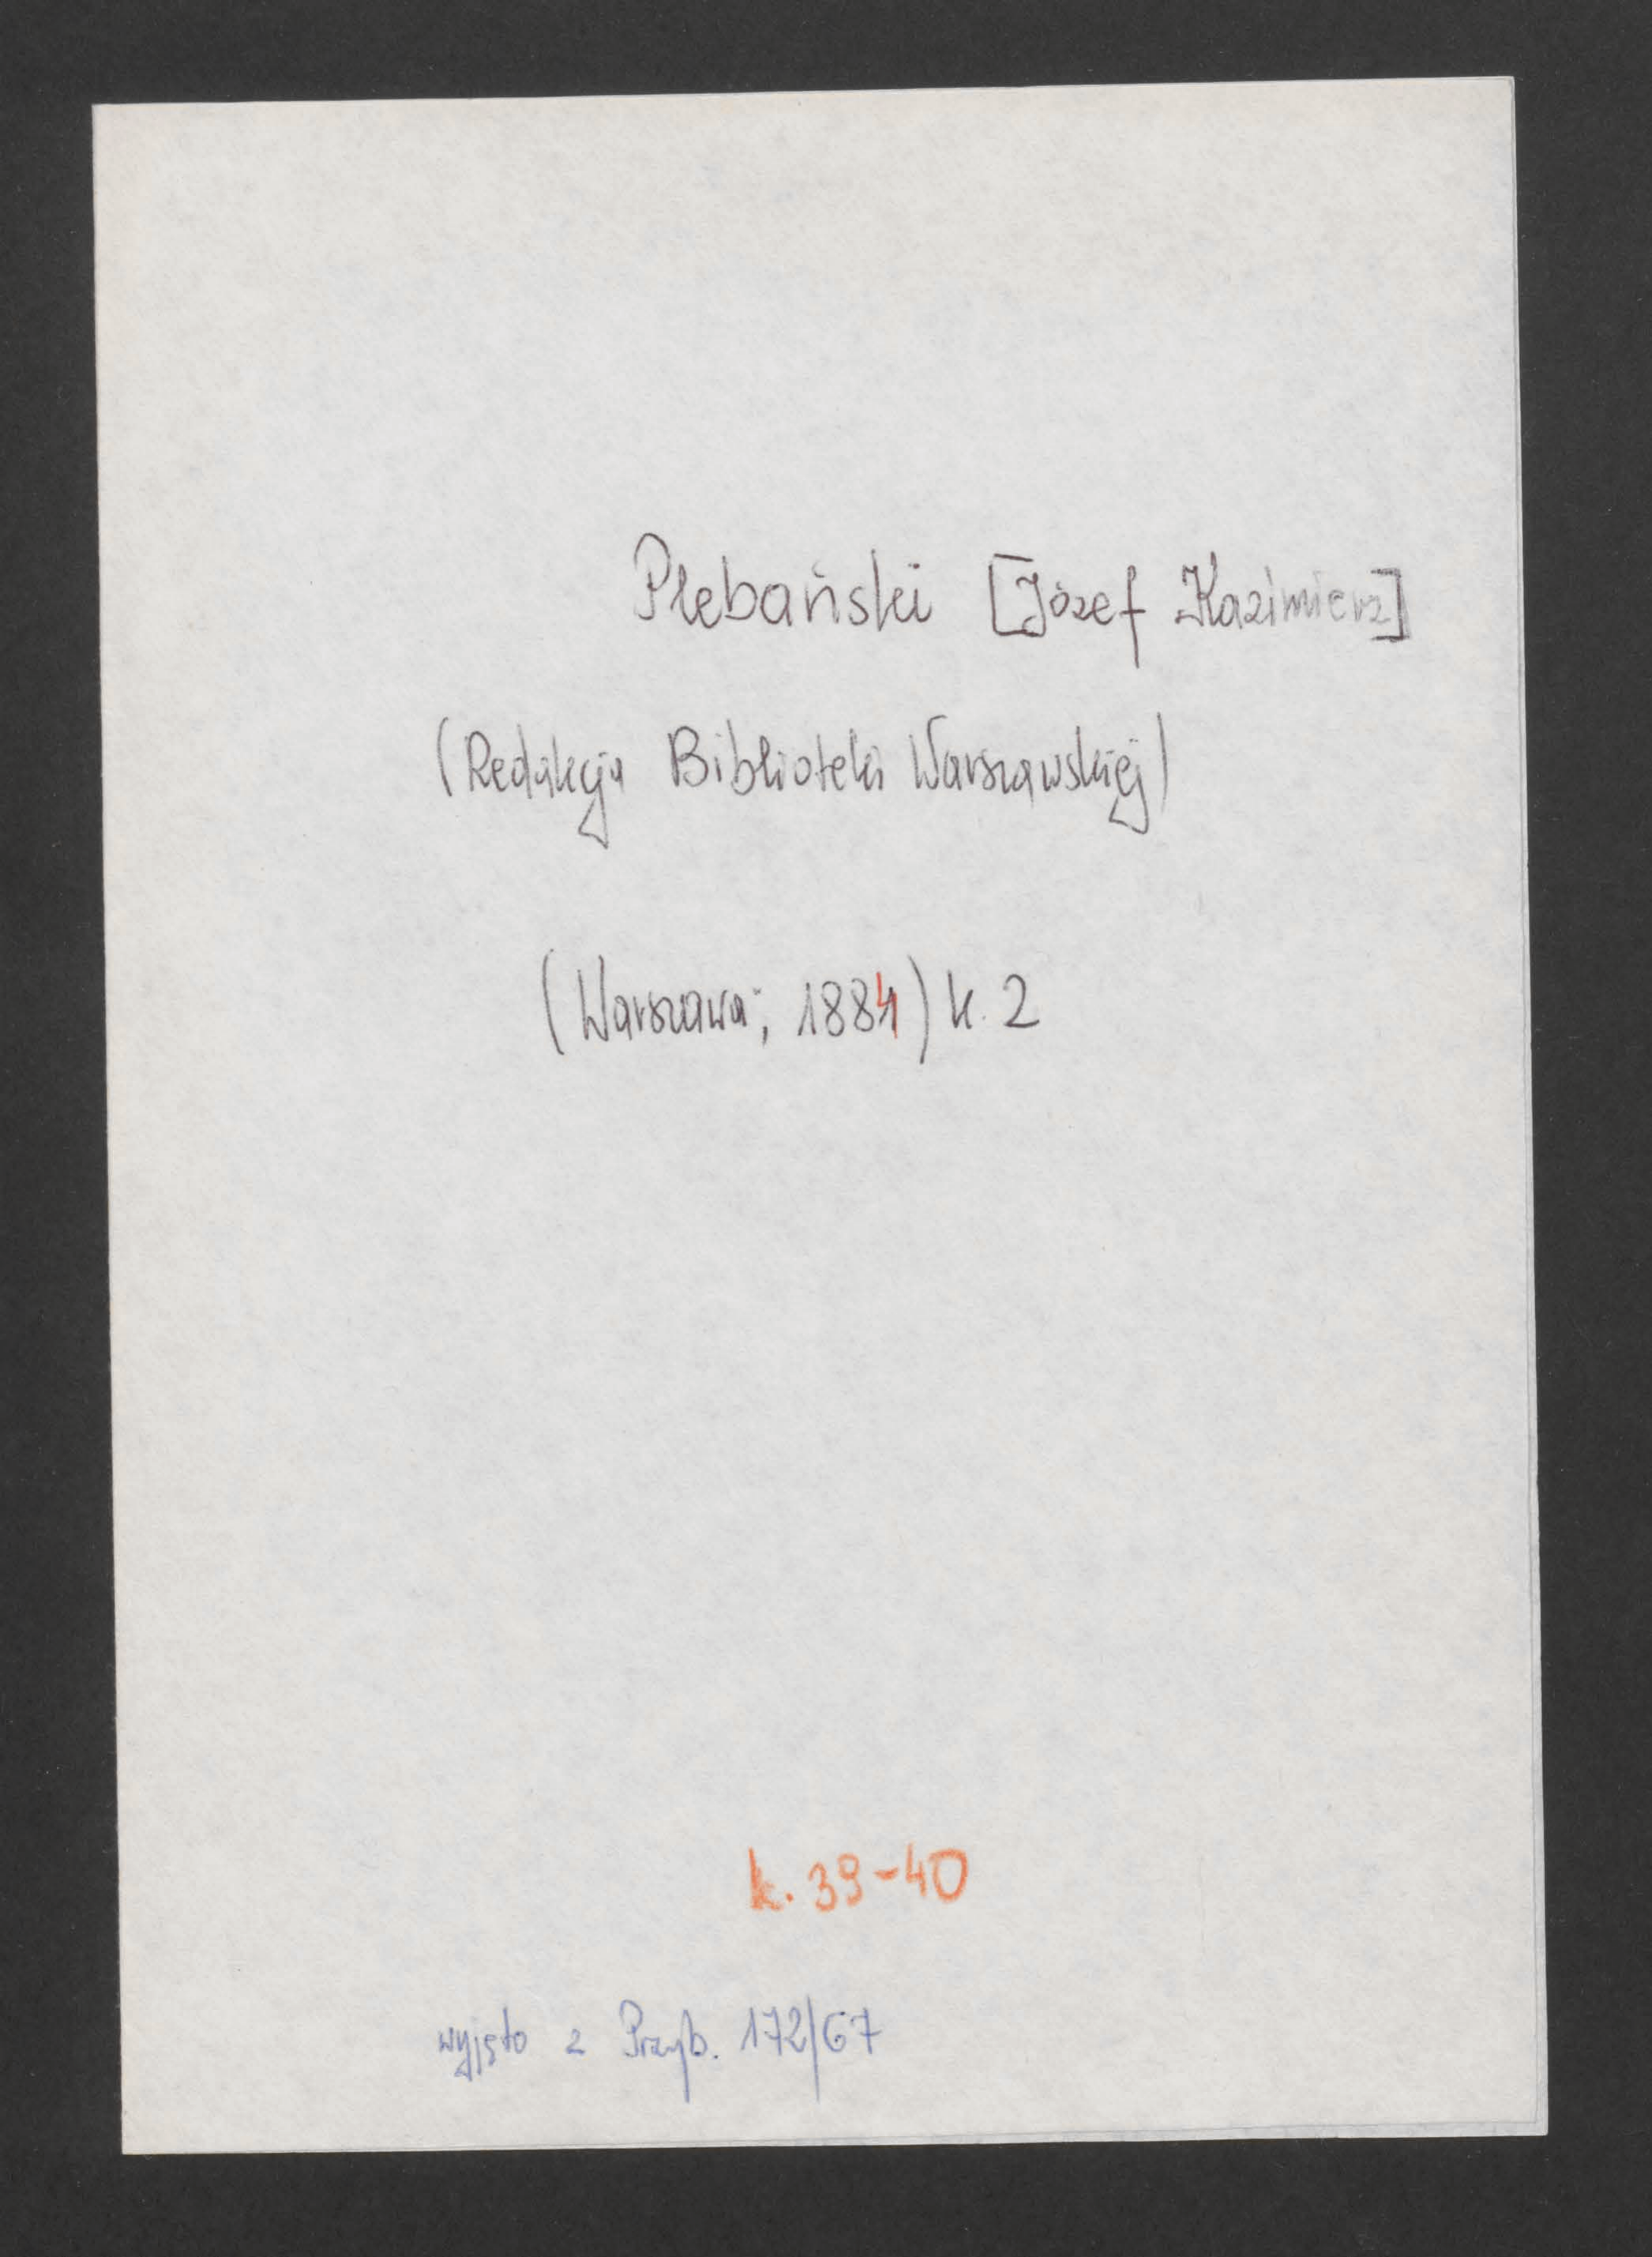 Plebański [Józef Kazimierz]
(Redakcja Biblioteki Warszawskiej)
(Warszawa; 1884) k. 2
k. 39-40
wyjęto z Przyb. 172/67